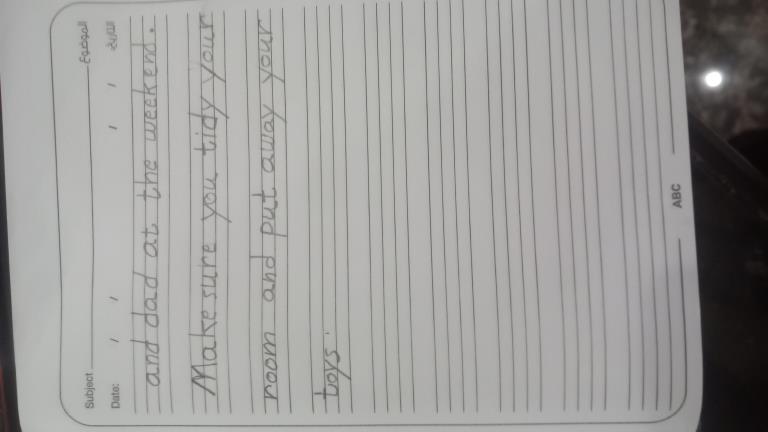 Subject الموضوع
Date: / / / / التاريخ
and dad at the weekend.
Make sure you tidy your
room and put away your
toys.
ABC